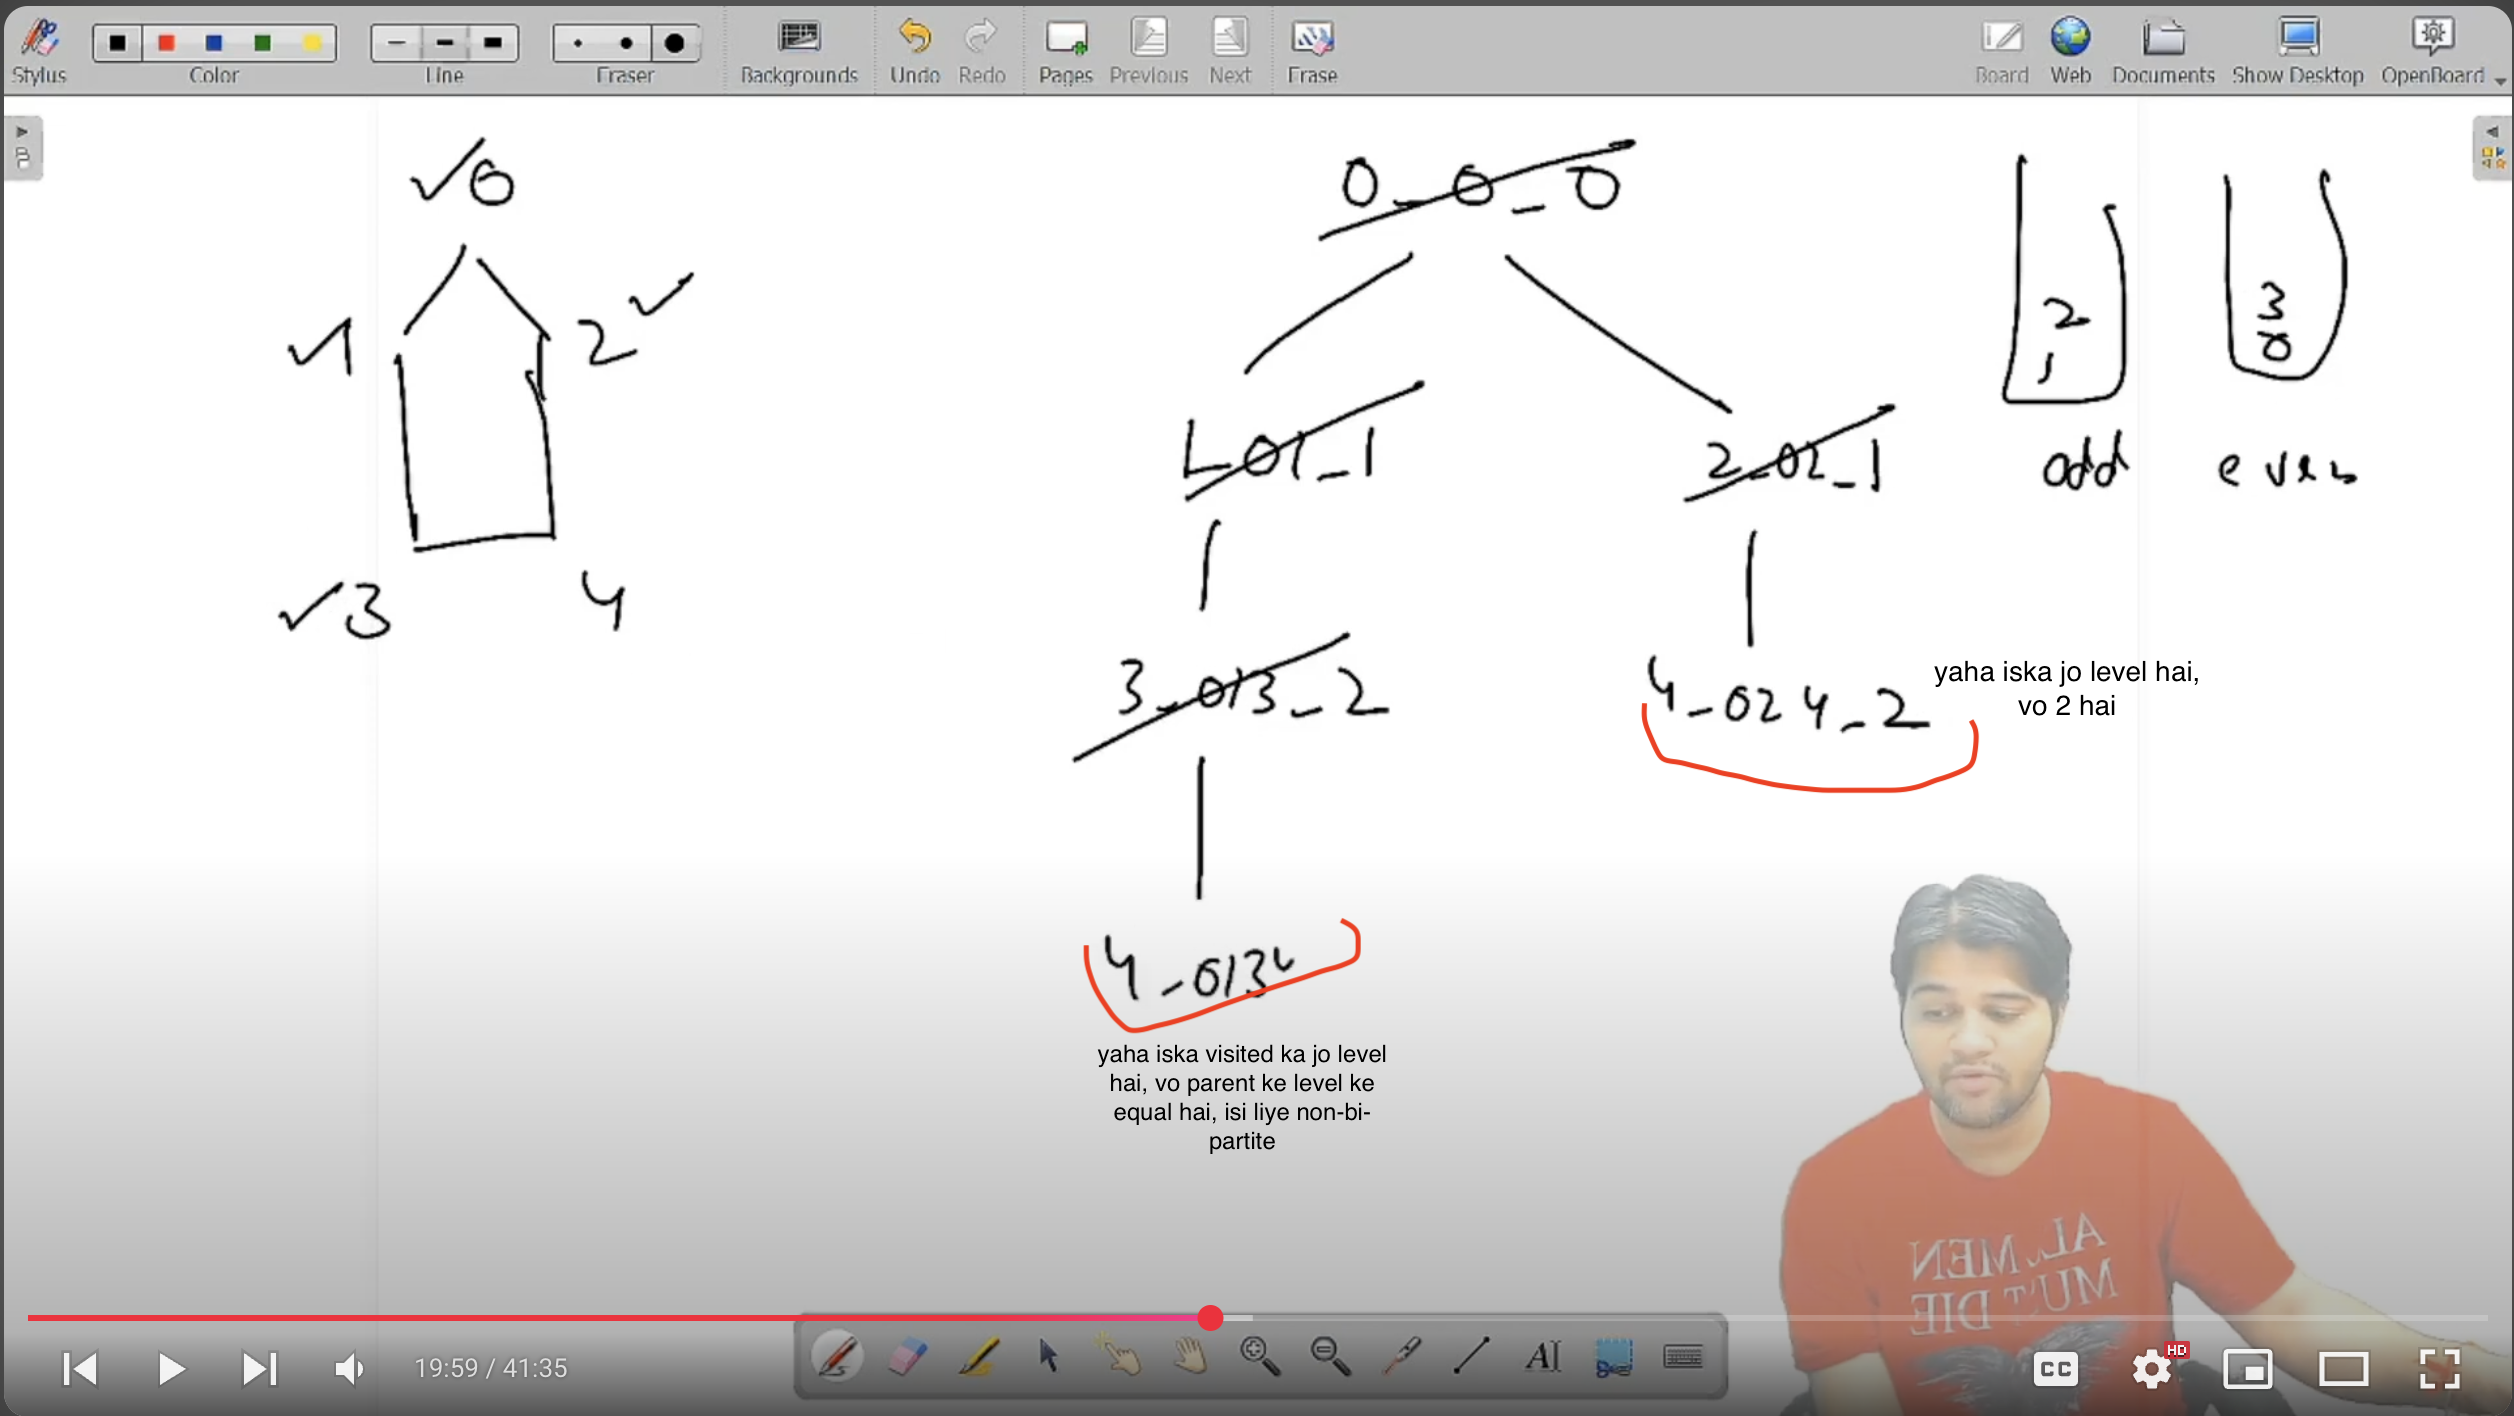 Stylus
Color
Line
Eraser
Backgrounds
Undo
Redo
Pages
Previous
Next
Erase
Board
Web
Documents
Show Desktop
OpenBoard
0
1
2
3
4
0_0_0
1_01_1
2_02_1
3_013_2
4_024_2
4_0134
2
1
odd
3
0
even
yaha iska jo level hai,
vo 2 hai
yaha iska visited ka jo level
hai, vo parent ke level ke
equal hai, isi liye non-bi-
partite
AL MEN
MUST DIE
19:59 / 41:35
AI
CC
HD